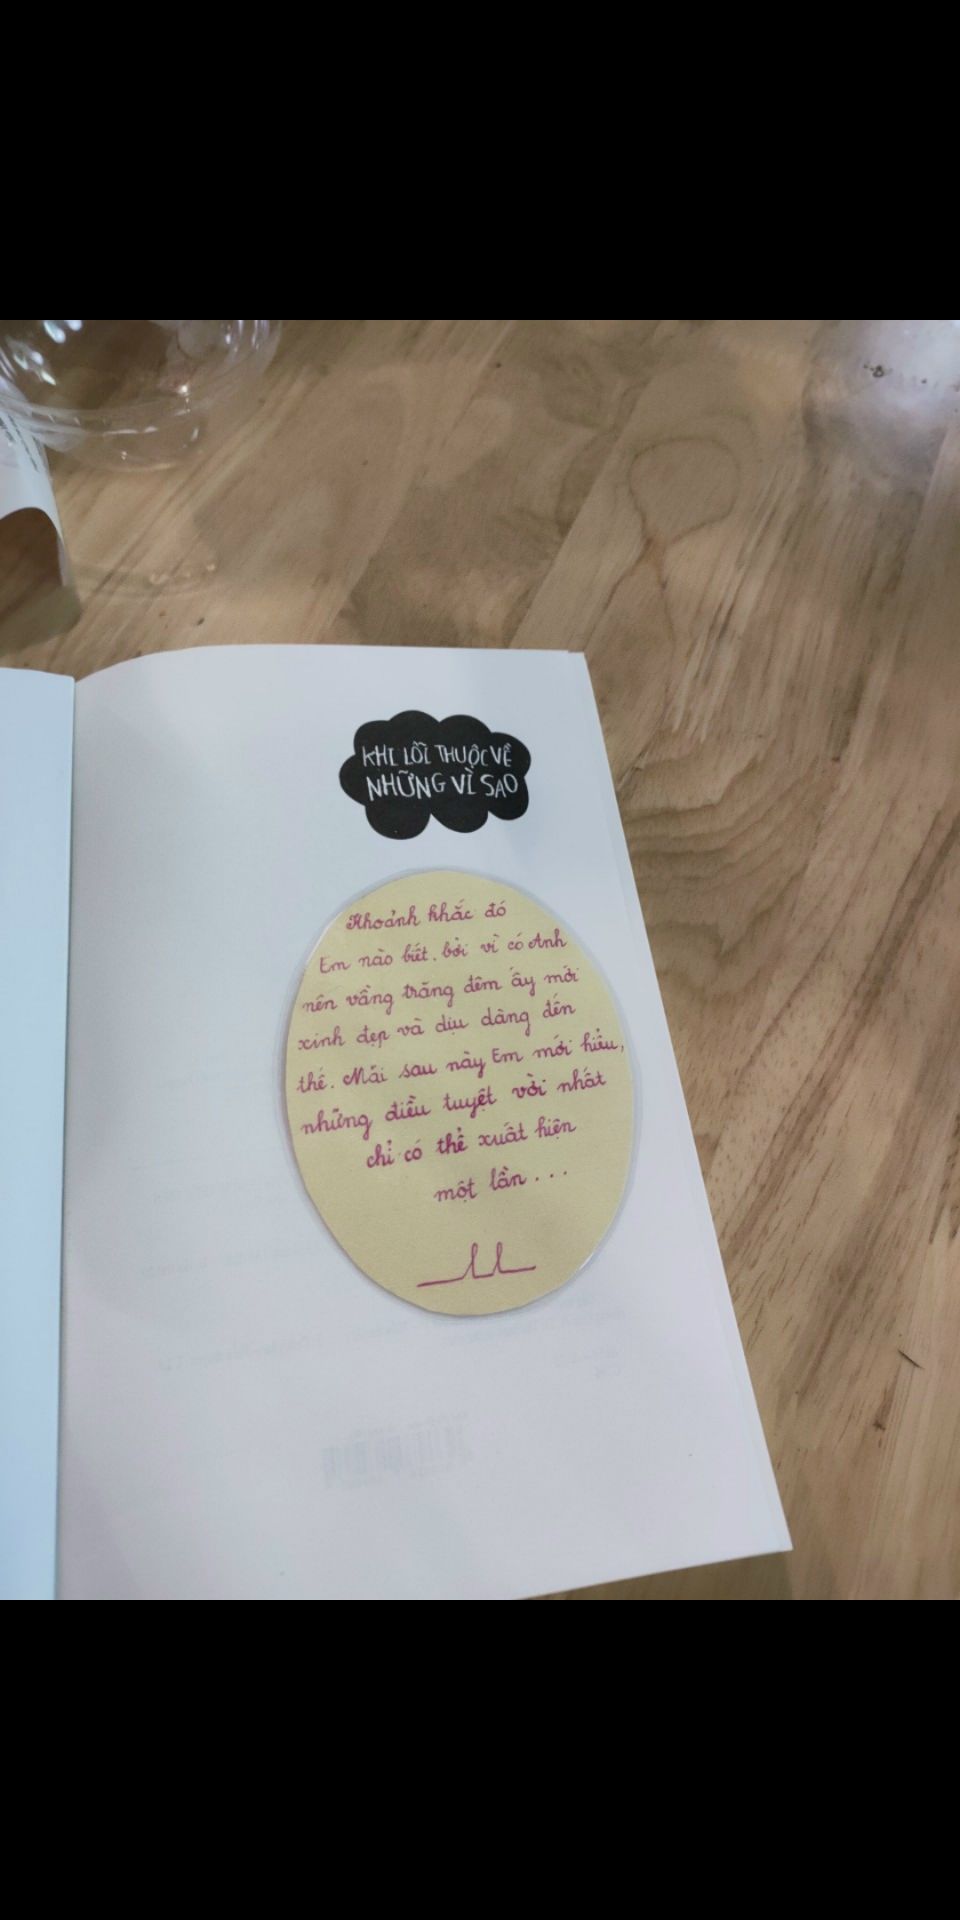 KHI LỖI THUỘC VỀ
NHỮNG VÌ SAO
Khoảnh khắc đó
Em nào biết, bởi vì có Anh
nên vầng trăng đêm ấy mới
xinh đẹp và dịu dàng đến
thế. Mãi sau này Em mới hiểu,
những điều tuyệt vời nhất
chỉ có thể xuất hiện
một lần...